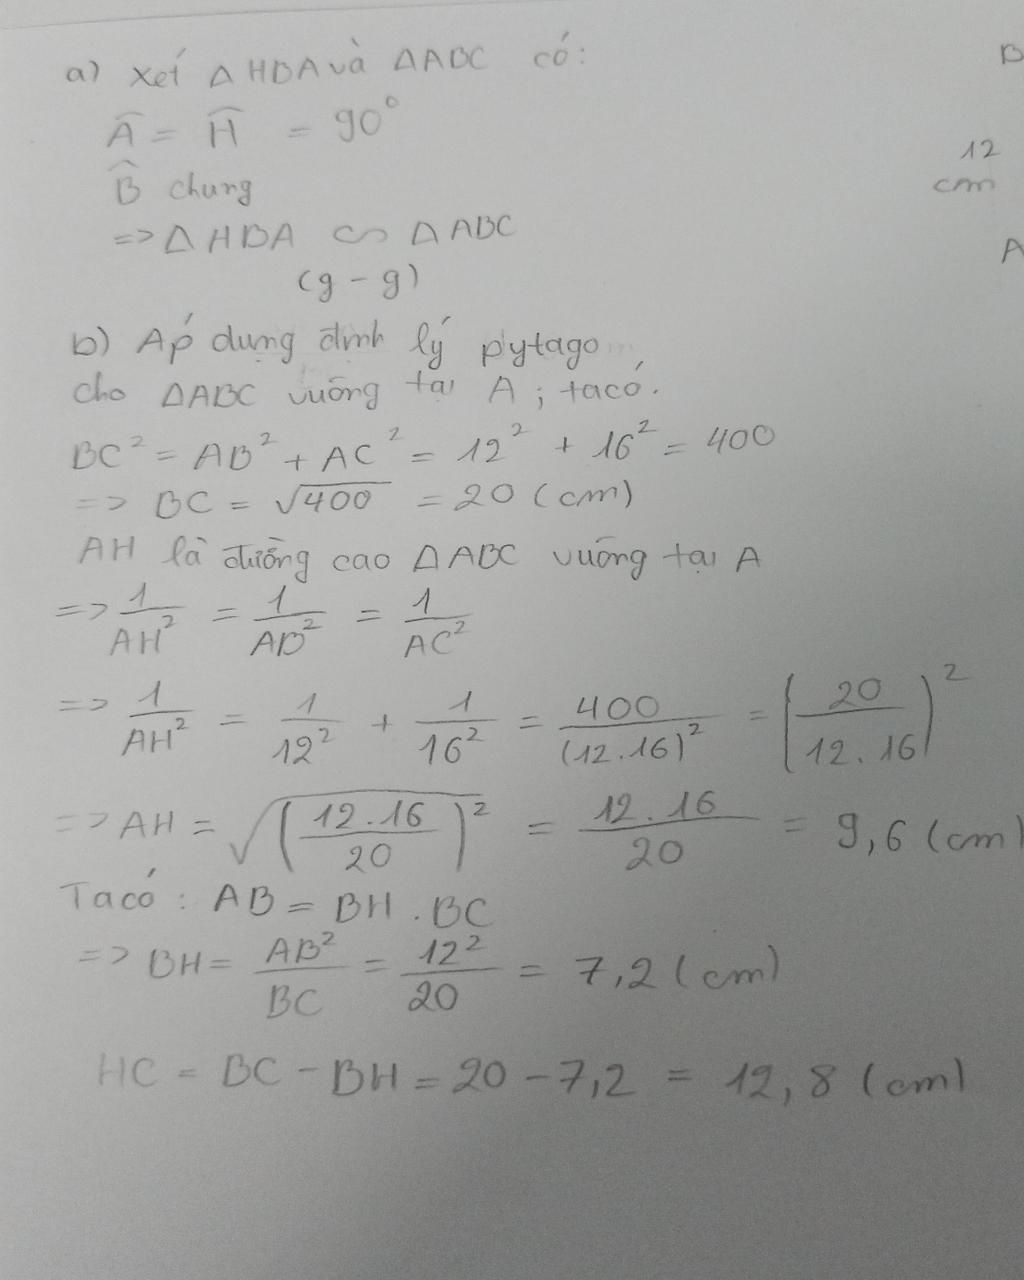 a) xét Δ HBA và ΔABC có:
Â = Ĥ = 90°
B̂ chung
=> Δ HBA ∽ Δ ABC
(g - g)
b) Áp dụng định lý pytago
cho ΔABC vuông tại A ; ta có.
BC² = AB² + AC² = 12² + 16² = 400
=> BC = √400 = 20 (cm)
AH là đường cao ΔABC vuông tại A
=> 1/AH² = 1/AB² = 1/AC²
=> 1/AH² = 1/12² + 1/16² = 400/(12.16)² = (20/12.16)²
=> AH = √(12.16/20)² = 12.16/20 = 9,6 (cm)
Ta có : AB = BH . BC
=> BH = AB²/BC = 12²/20 = 7,2 (cm)
HC = BC - BH = 20 - 7,2 = 12,8 (cm)
B
12
cm
A